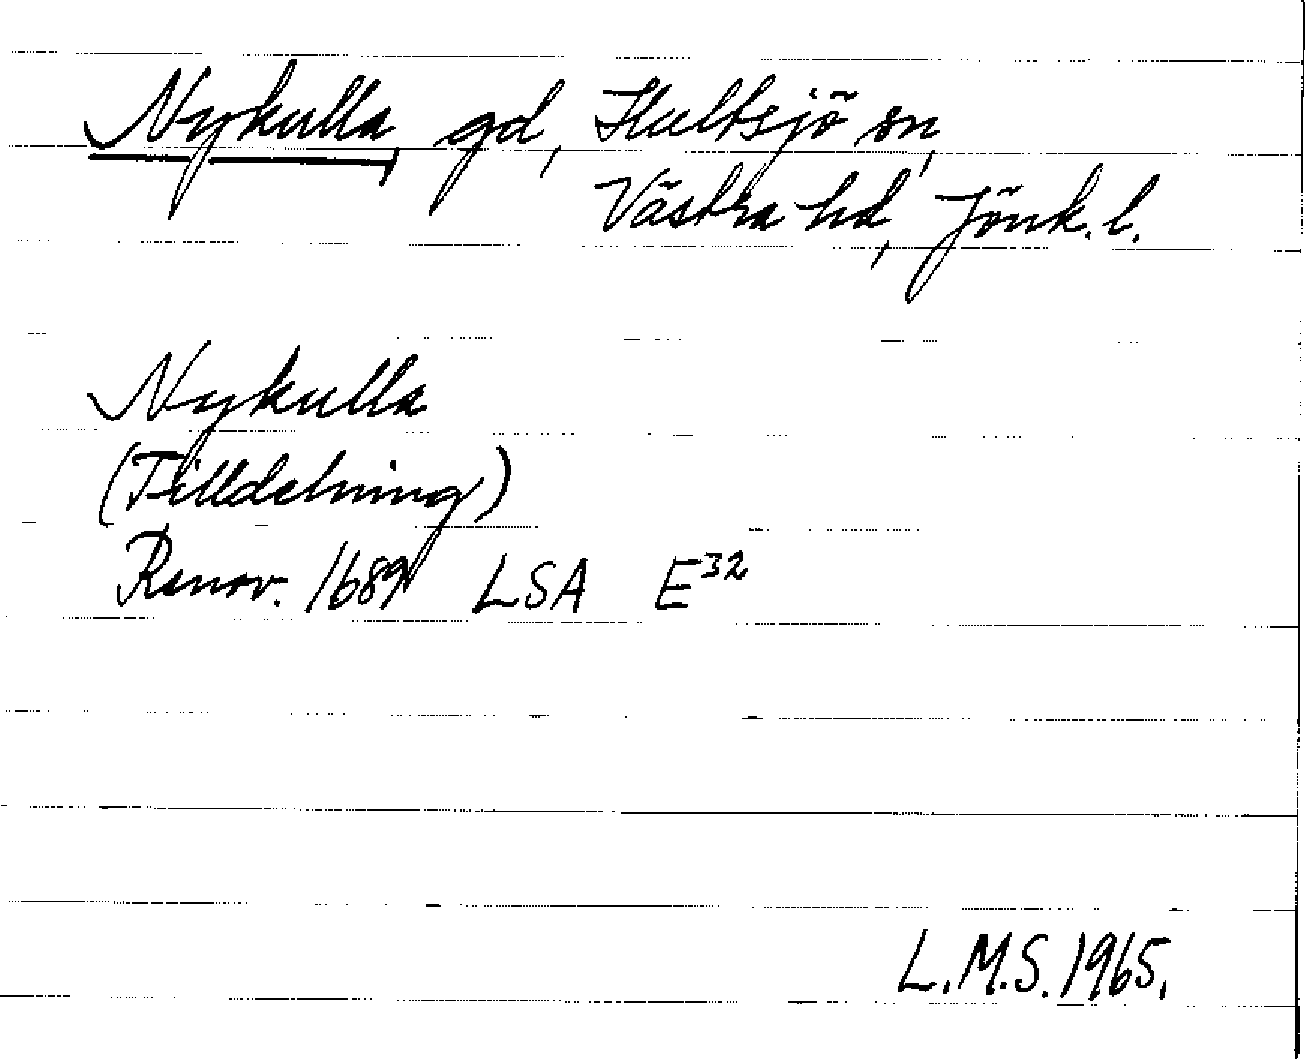 Nykulla, gd, Hultsjö sn,
Västra hd, Jönk. l.
Nykulla
(Tilldelning)
Renov. 1689 LSA E32
L.M.S. 1965.